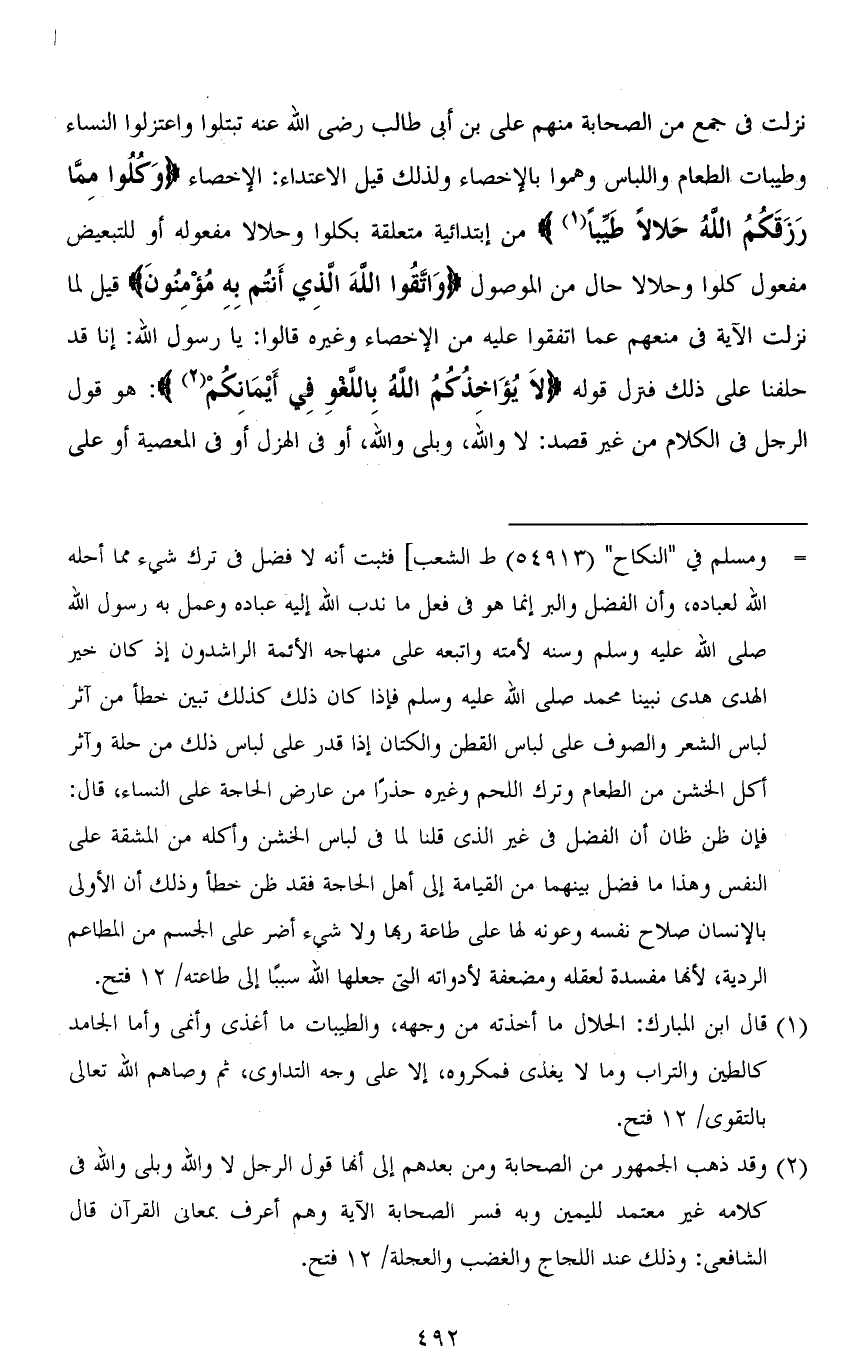 نزلت فى جمع من الصحابة منهم على بن أبى طالب رضى الله عنه تبتلوا واعتزلوا النساء
وطيبات الطعام واللباس وهموا بالإخصاء ولذلك قيل الاعتداء: الإخصاء ﴿وَكُلُوا مِمَّا
رَزَقَكُمُ اللَّهُ حَلالاً طَيِّباً(١)﴾ من إبتدائية متعلقة بكلوا وحلالا مفعوله أو للتبعيض
مفعول كلوا وحلالا حال من الموصول ﴿وَاتَّقُوا اللَّهَ الَّذِي أَنتُم بِهِ مُؤْمِنُونَ﴾ قيل لما
نزلت الآية فى منعهم عما اتفقوا عليه من الإخصاء وغيره قالوا: يا رسول الله: إنا قد
حلفنا على ذلك فنزل قوله ﴿لاَ يُؤَاخِذُكُمُ اللَّهُ بِاللَّغْوِ فِي أَيْمَانِكُمْ(٢)﴾: هو قول
الرجل فى الكلام من غير قصد: لا والله، وبلى والله، أو فى الهزل أو فى المعصية أو على
= ومسلم في "النكاح" (٥٤٩١٣) ط الشعب] فثبت أنه لا فضل فى ترك شيء مما أحله
الله لعباده، وأن الفضل والبر إنما هو فى فعل ما ندب الله إليه عباده وعمل به رسول الله
صلى الله عليه وسلم وسنه لأمته واتبعه على منهاجه الأئمة الراشدون إذ كان خير
الهدى هدى نبينا محمد صلى الله عليه وسلم فإذا كان ذلك كذلك تبين خطأ من آثر
لباس الشعر والصوف على لباس القطن والكتان إذا قدر على لباس ذلك من حلة وآثر
أكل الخشن من الطعام وترك اللحم وغيره حذرًا من عارض الحاجة على النساء، قال:
فإن ظن ظان أن الفضل فى غير الذى قلنا لما فى لباس الخشن وأكله من المشقة على
النفس وهذا ما فضل بينهما من القيامة إلى أهل الحاجة فقد ظن خطأ وذلك أن الأولى
بالإنسان صلاح نفسه وعونه لها على طاعة ربها ولا شيء أضر على الجسم من المطاعم
الردية، لأنها مفسدة لعقله ومضعفة لأدواته التى جعلها الله سببًا إلى طاعته/ ١٢ فتح.
(١) قال ابن المبارك: الحلال ما أخذته من وجهه، والطيبات ما أغذى وأنمى وأما الجامد
كالطين والتراب وما لا يغذى فمكروه، إلا على وجه التداوى، ثم وصاهم الله تعالى
بالتقوى/ ١٢ فتح.
(٢) وقد ذهب الجمهور من الصحابة ومن بعدهم إلى أنها قول الرجل لا والله وبلى والله فى
كلامه غير معتمد لليمين وبه فسر الصحابة الآية وهم أعرف بمعانى القرآن قال
الشافعى: وذلك عند اللجاج والغضب والعجلة/ ١٢ فتح.
٤٩٢